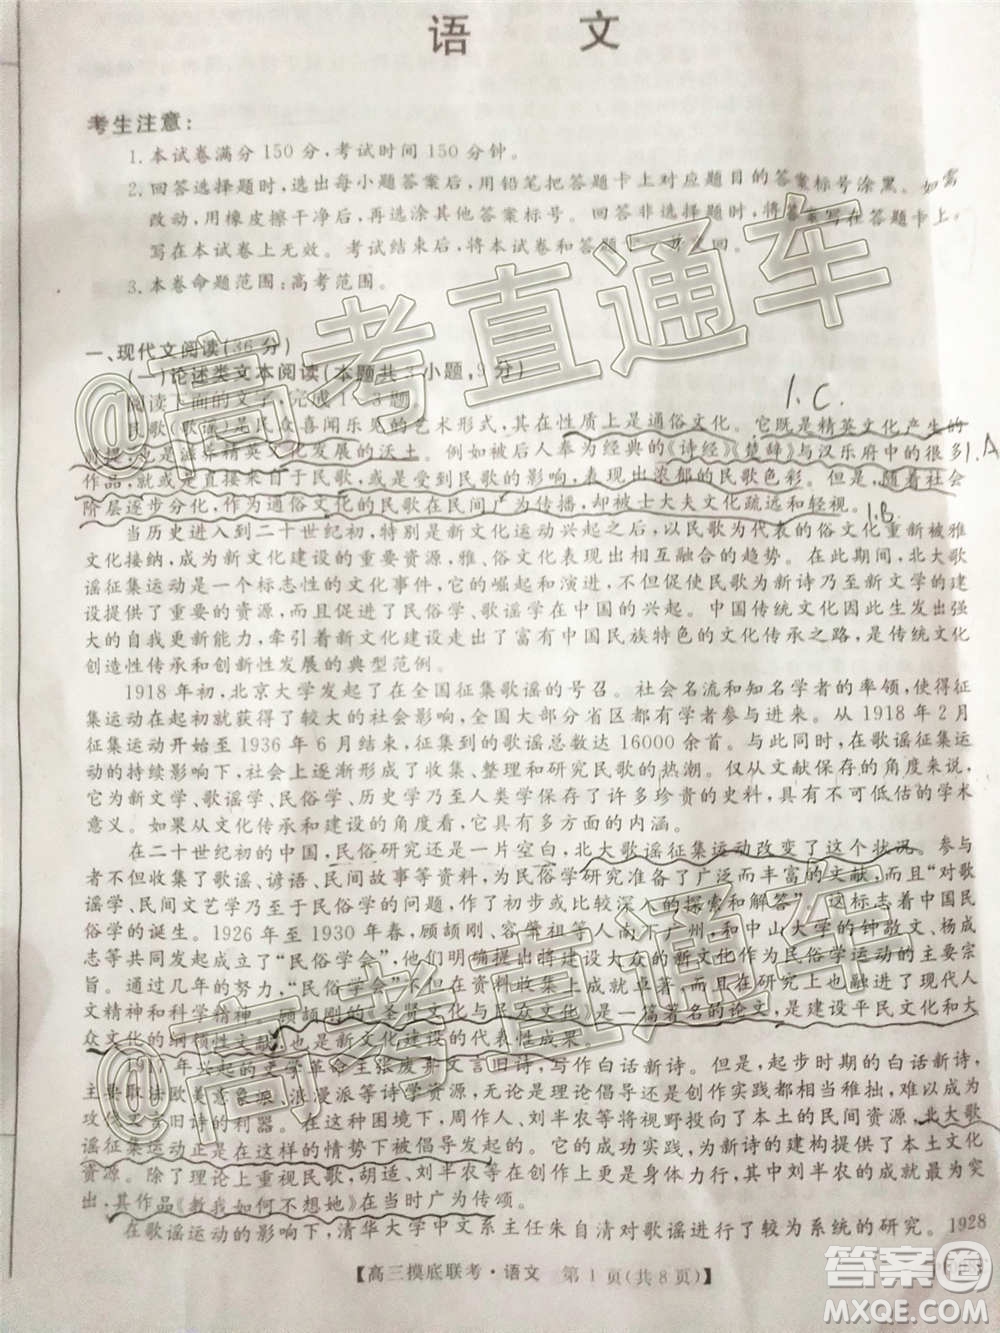 语 文
考生注意:
1.本试卷满分150分,考试时间150分钟。
2.回答选择题时,选出每小题答案后,用铅笔把答题卡上对应题目的答案标号涂黑。如需
改动,用橡皮擦干净后,再选涂其他答案标号。回答非选择题时,将答案写在答题卡上,
写在本试卷上无效。考试结束后,将本试卷和答题卡一并交回。
3.本卷命题范围:高考范围。
一、现代文阅读(36分)
(一)论述类文本阅读(本题共3小题,9分)
阅读下面的文字,完成1~3题。
1.C
民歌(歌谣)是民众喜闻乐见的艺术形式,其在性质上是通俗文化。它既是精英文化产生的
前提,也是滋养精英文化发展的沃土。例如被后人奉为经典的《诗经》《楚辞》与汉乐府中的很多
1.A
作品,或就是直接来自于民歌,或是受到民歌的影响,表现出浓郁的民歌色彩。但是,随着社会
阶层逐步分化,作为通俗文化的民歌在民间广为传播,却被士大夫文化疏远和轻视。
1.B
当历史进入到二十世纪初,特别是新文化运动兴起之后,以民歌为代表的俗文化重新被雅
文化接纳,成为新文化建设的重要资源,雅、俗文化表现出相互融合的趋势。在此期间,北大歌
谣征集运动是一个标志性的文化事件,它的崛起和演进,不仅促成民歌为新诗乃至新文学的建
设提供了重要的资源,而且促进了民俗学、歌谣学在中国的兴起。中国传统文化因此生发出强
大的自我更新能力,牵引着新文化建设走出了富有中国民族特色的文化传承之路,是传统文化
创造性传承和创新性发展的典型范例。
1918年初,北京大学发起了在全国征集歌谣的号召。社会名流和知名学者的率领,使得歌谣
征集运动在起初就获得了较大的社会影响,全国大部分省区都有学者参与进来。从1918年2月
征集运动开始至1936年6月结束,征集到的歌谣总数达16000余首。与此同时,在歌谣征集运
动的持续影响下,社会上逐渐形成了收集、整理和研究民歌的热潮。仅从文献保存的角度来看,
它为新文学、歌谣学、民俗学、历史学乃至语言学保存了许多珍贵的史料,具有不可低估的学术
意义。如果从文化传承和建设的角度看,它又具有多方面的内涵。
在二十世纪初的中国,民俗研究还是一片空白,北大歌谣征集运动改变了这个状况。参与
者不但收集了歌谣、谚语、民间故事等资料,为民俗学研究准备了广泛而丰富的文献,而且“对歌
谣学、民间文艺学乃至于民俗学的问题,作了初步或比较深入的探索和解答”。这标志着中国民
俗学的诞生。1926年至1930年春,顾颉刚、容肇祖等人南下广州,和中山大学的钟敬文、杨成
志等共同发起成立了“民俗学会”,他们明确提出将建设大众的新文化作为“民俗学会”的宗
旨。通过几年的努力,“民俗学会”在资料收集上成就卓著,而且在学理上促进了现代人
文精神和科学精神 顾颉刚的《圣贤文化与民众文化》是一篇著名的论文,是建设平民文化和大
众文化的纲领性文献,也是新文化建设的代表性成果。
1917年兴起的文学革命主张废弃文言旧诗,写作白话新诗。但是,起步时期的白话新诗,
主要取法欧美意象派、浪漫派等诗学资源,无论是理论倡导还是创作实践,都缺乏新诗
攻伐 旧诗的利器。在这种困境下,周作人、刘半农等将视野投向了本土的民间资源,北大歌
谣征集运动正是在这样的情势下被发起的。它的成功实践,为新诗的建构提供了本土文化
资源。除了理论上重视民歌,胡适、刘半农等在创作上更是身体力行,其中刘半农的成就最为突
出,其作品《教我如何不想她》在当时广为传颂。
在歌谣运动的影响下,清华大学中文系主任朱自清对歌谣进行了较为系统的研究。1928
【高三摸底联考·语文 第1页(共8页)】
@高考直通车
@高考直通车
答案圈
MXQE.COM